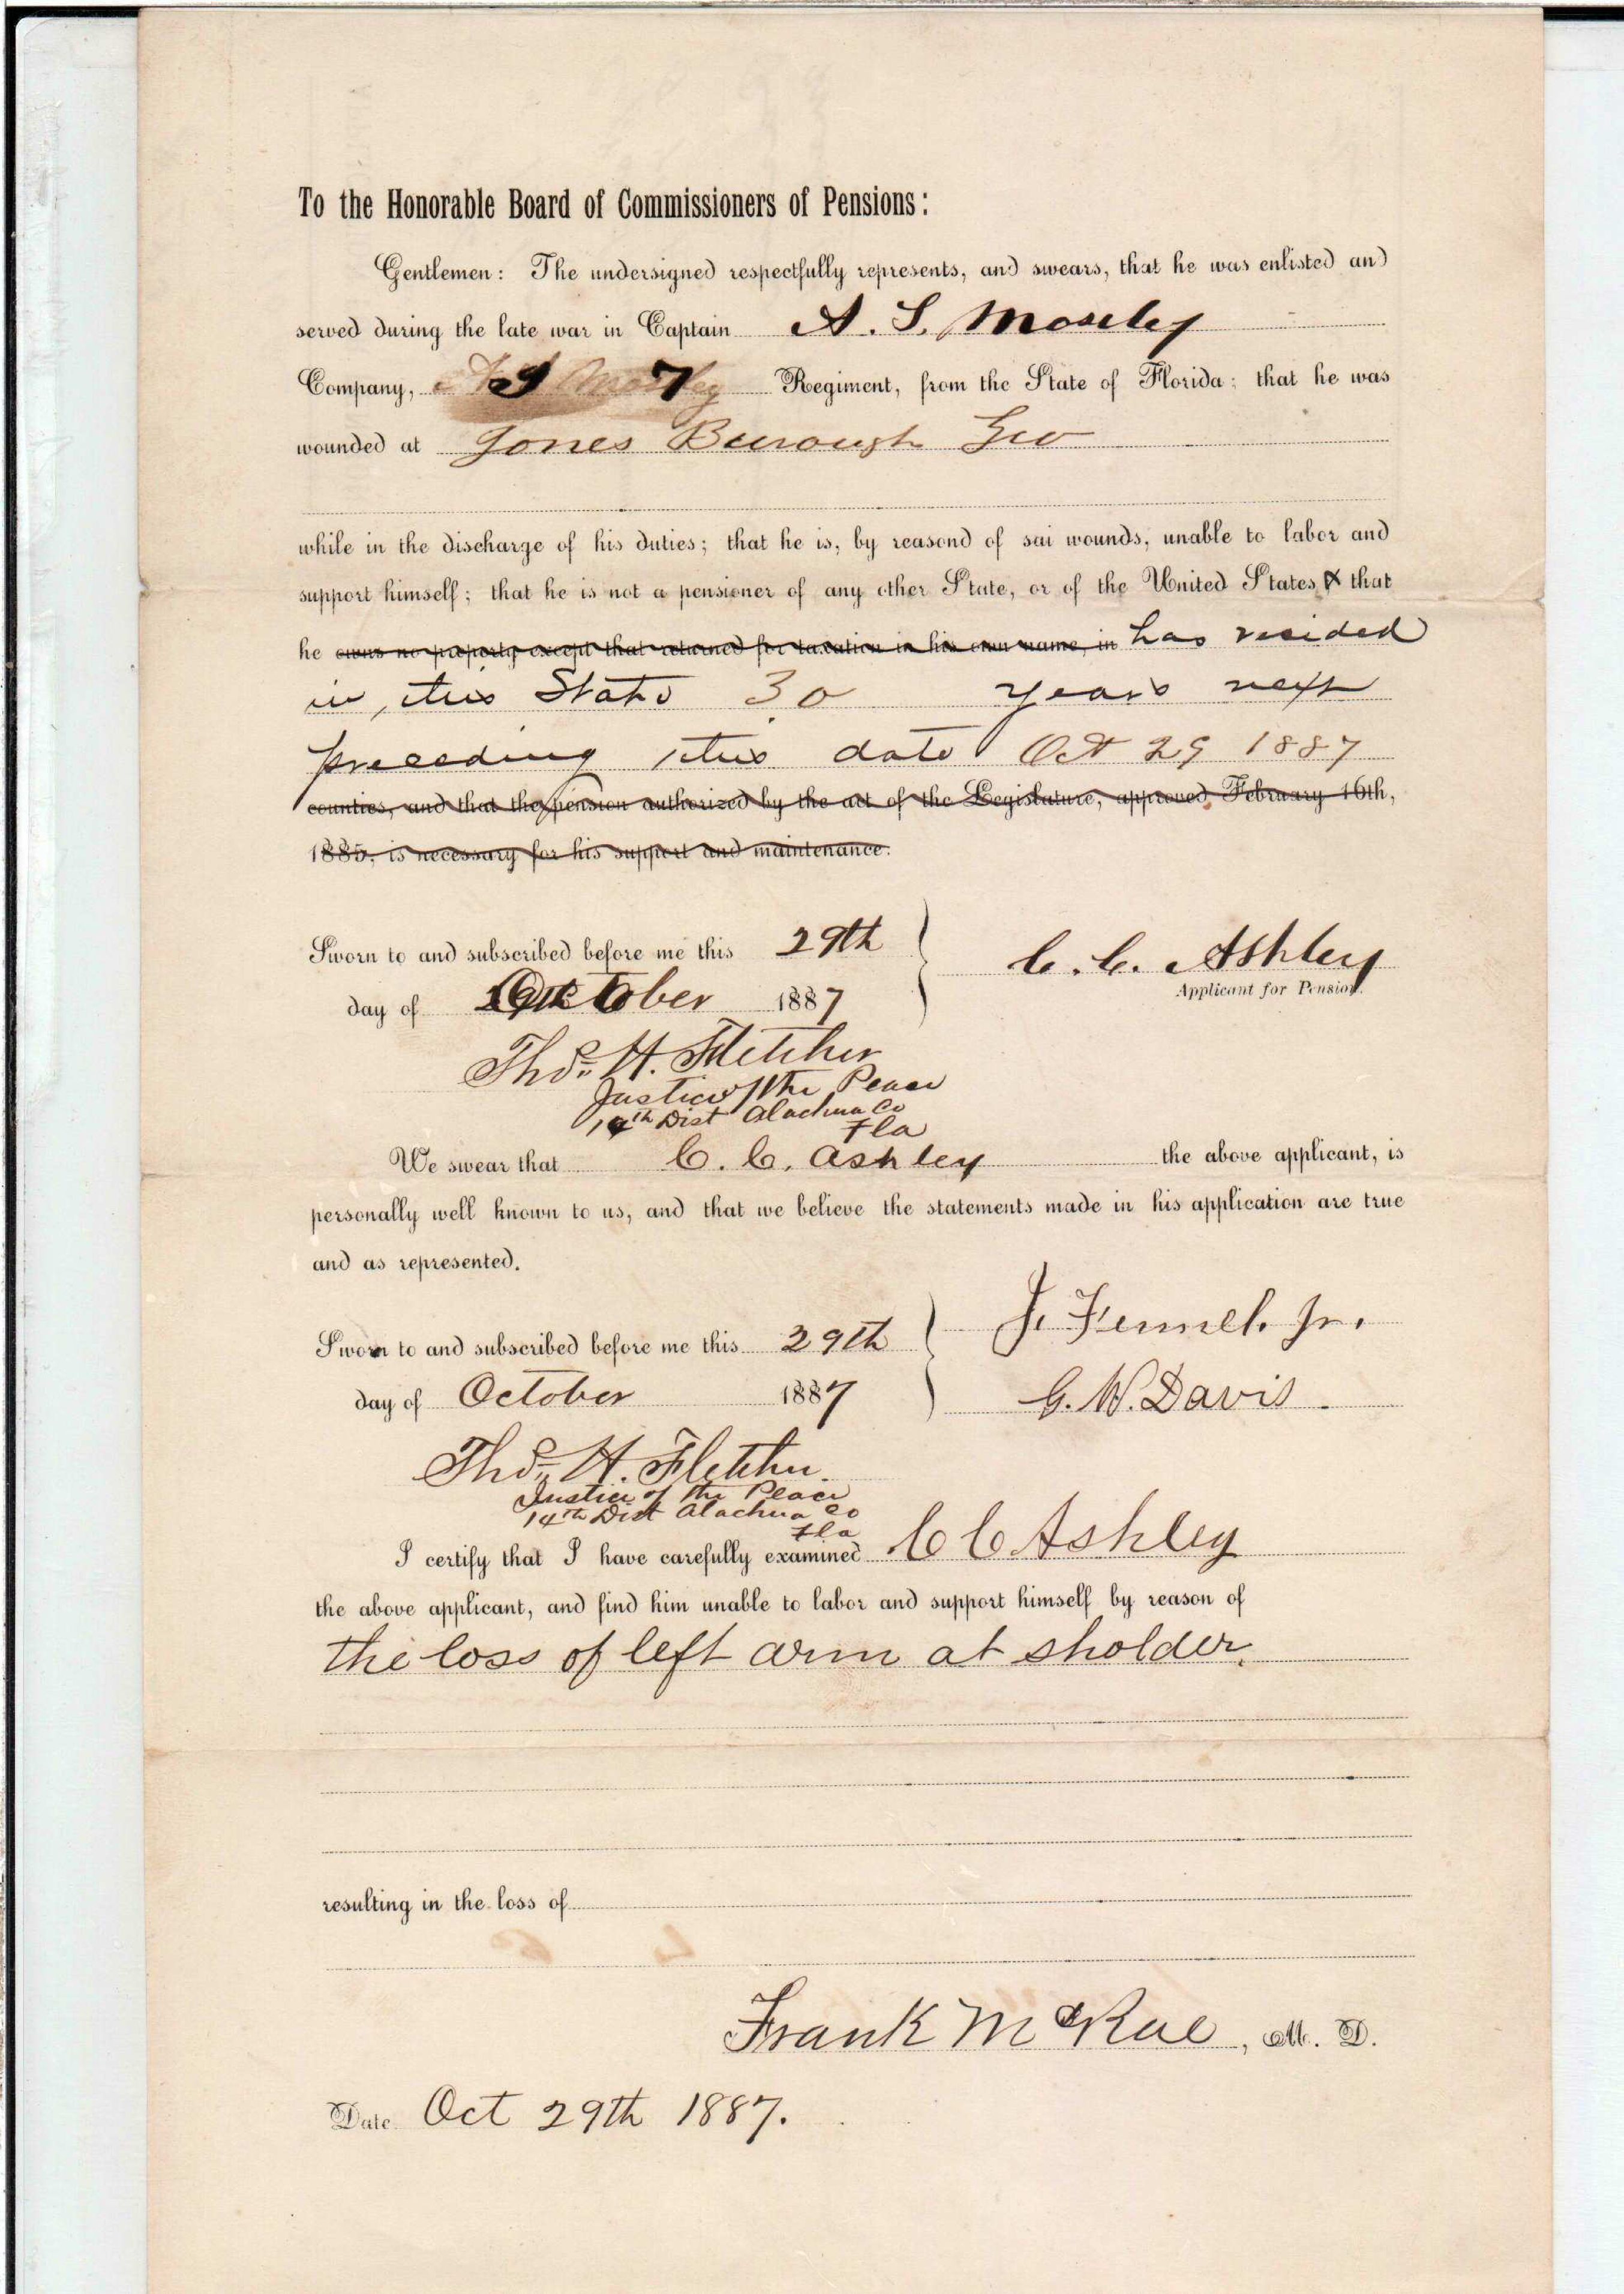 To the Honorable Board of Commissioners of Pensions:
Gentlemen: The undersigned respectfully represents, and swears, that he was enlisted and
served during the late war in Captain A. S. Moseley
Company, 7 Regiment, from the State of Florida; that he was
wounded at Jones Burough Geo
while in the discharge of his duties; that he is, by reasond of sai wounds, unable to labor and
support himself; that he is not a pensioner of any other State, or of the United States, & that
he owns no property except that returned for taxation in his own name, in has resided
in this State 30 years next
preceeding this date Oct 29 1887
counties, and that the pension authorized by the act of the Legislature, approved February 16th,
1885, is necessary for his support and maintenance.
Sworn to and subscribed before me this 29th
day of October 1887
C. C. Ashley
Applicant for Pension.
Thos. H. Fletcher
Justice of the Peace
14th Dist Alachua Co
Fla
We swear that C. C. Ashley the above applicant, is
personally well known to us, and that we believe the statements made in his application are true
and as represented.
Sworn to and subscribed before me this 29th
day of October 1887
J. Fennel. Jr.
G. W. Davis.
Thos. H. Fletcher.
Justice of the Peace
14th Dist Alachua Co
Fla
I certify that I have carefully examined C C Ashley
the above applicant, and find him unable to labor and support himself by reason of
the loss of left arm at sholder.
resulting in the loss of
Frank McRae, M. D.
Date Oct 29th 1887.